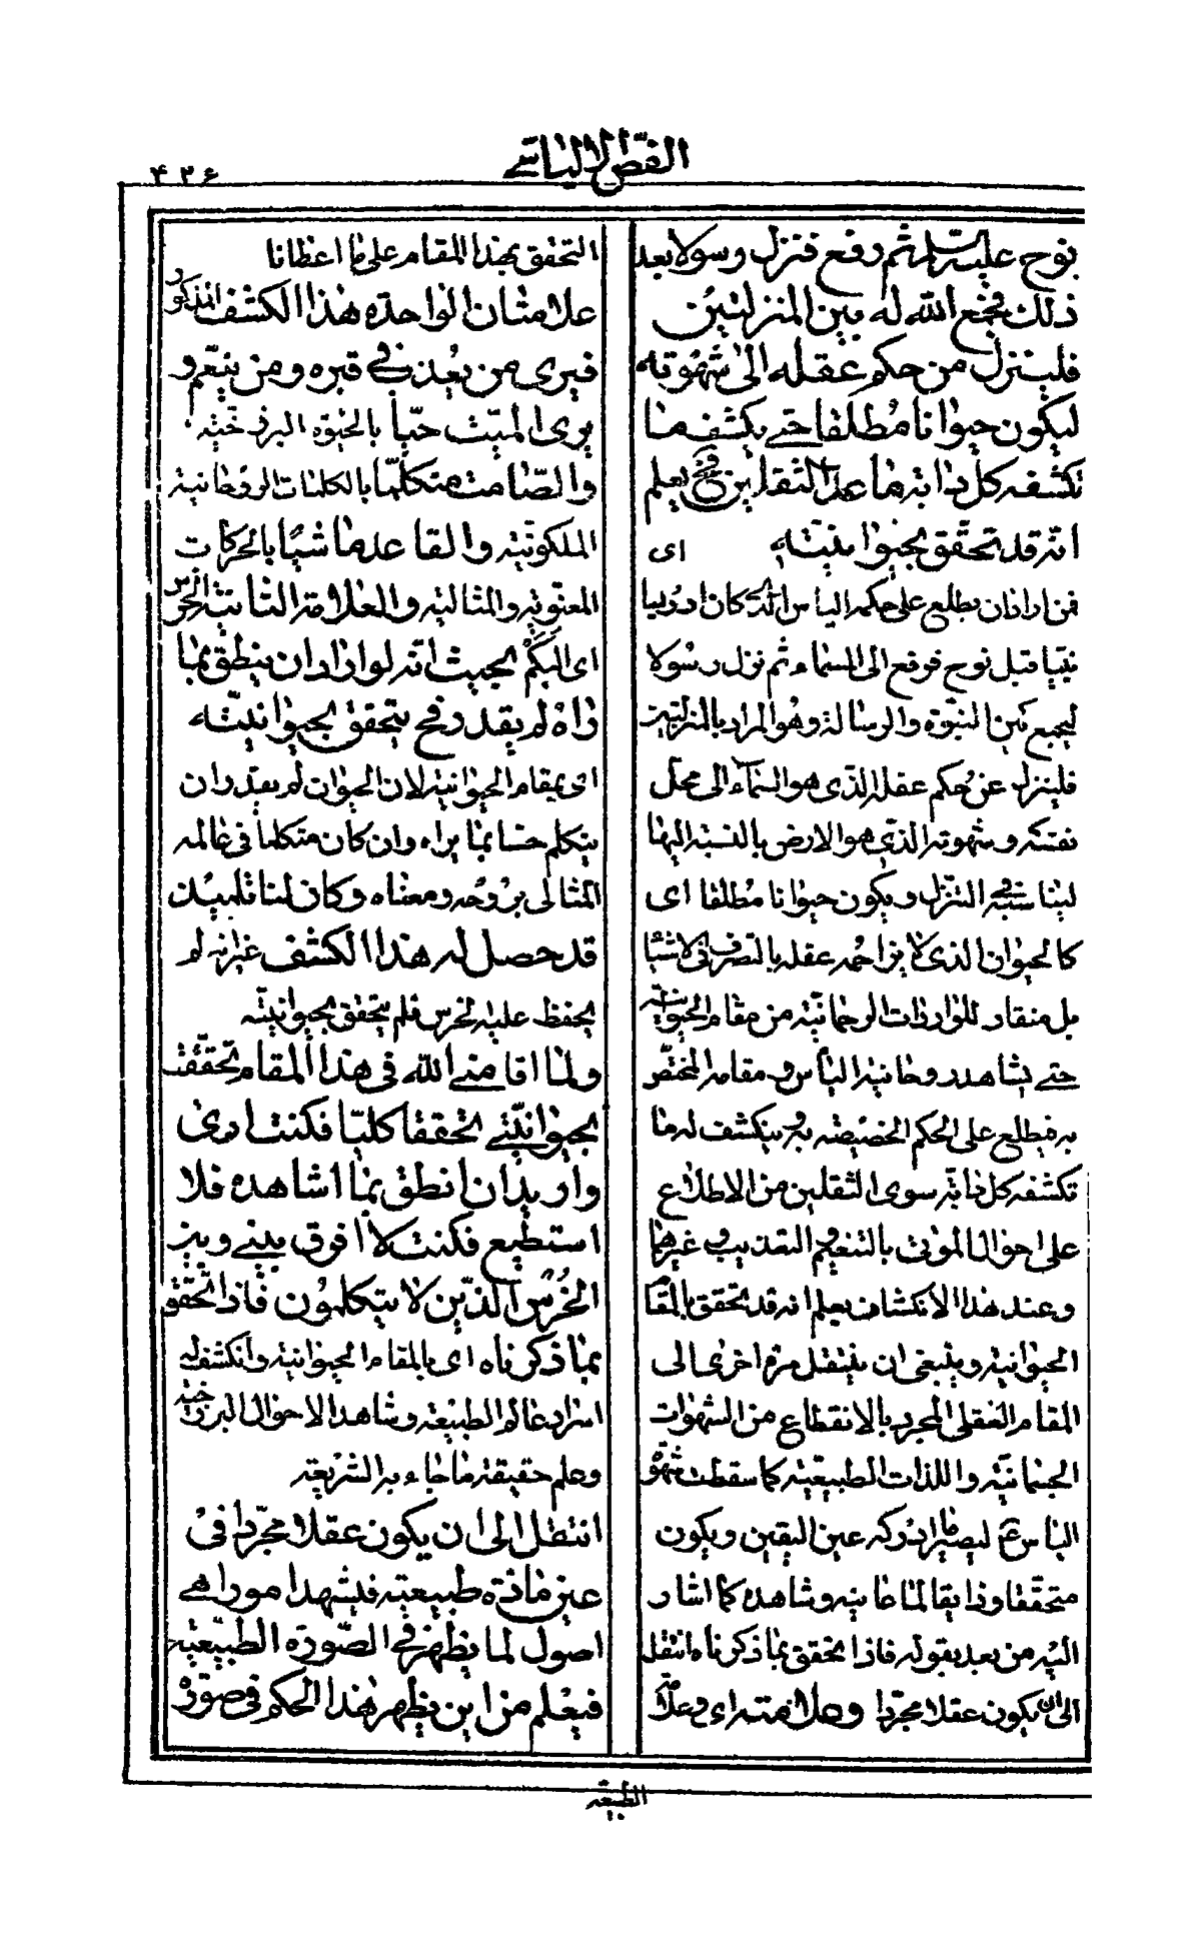 الفصّ الالياسے
۴۲۶
نوح عليه السلم ثم رفع فنزل رسولا بعد
ذلك فجمع الله له بين المنزلتين
فلينزل من حكم عقله الى شهوته
ليكون حيوانا مطلقا حتے يكشف ما
تكشفه كل دابة ما عدا الثقلين فح يعلم
انه قد تحقق بحيوانيته اى
فمن اراد ان يطلع على حكمة الياس الذى كان ادريسا
نبيا قبل نوح فرفع الى السماء ثم نزل رسولا
ليجمع بين النبوة والرسالة وهو المراد بالمنزلتين
فلينزل عن حكم عقله الذى هو السماء الى محل
نفسه وشهوته الذى هو الارض بالنسبة اليها
ليناسبه فى التنزل ويكون حيوانا مطلقا اى
كالحيوان الذى لا يزاحمه عقله بالتصرف فى الاشياء
بل منقاد للواردات الرحمانية من مقام الحيوانية
حتے يشاهد روحانية الياس و مقامه المختص
به فيطلع على الحكم الخصيصة به و ينكشف له ما
تكشفه كل دابة سوى الثقلين من الاطلاع
على احوال الموتى بالتنعيم و التعذيب و غيرهما
وعند هذا الانكشاف يعلم انه قد تحقق بالمقام
الحيوانية وينبغى ان ينتقل مرة اخرى الى
المقام العقلى المجرد بالانقطاع من الشهوات
الجسمانية واللذات الطبيعية كما سقطت شهوة
الياس ع ليصير ما ادركه عين اليقين ويكون
متحققا وذايقا لما عاينه وشاهده كما اشار
اليه من بعد بقوله فاذا تحقق بما ذكرناه انتقل
الى ان يكون عقلا مجردا وعلامته اى وعلامة
التحقق بهذا المقام على ما اعطانا
علامتان الواحدة هذا الكشف المذكور
فيرى من يعذب فى قبره ومن ينعم و
يرى الميت حيّا بالحيوة البرزخية
والصامت متكلّما بالكلمات الروحانية
الملكوتية والقاعد ماشيًا بالحركات
المعنوية والمثالية والعلامة الثانية الخرس
اى البكم بحيث انه لو اراد ان ينطق بما
راه لم يقدر فح يتحقق بحيوانيته
اى بمقام الحيوانية لان الحيوان لم يقدر ان
يتكلم حسا بما يراه وان كان متكلما فى عالمه
المثالى بروحه ومعناه وكان لنا تلميذ
قد حصل له هذا الكشف غير انه لم
يحفظ عليه الخرس فلم يتحقق بحيوانيته
ولما اقامنے الله فى هذا المقام تحققت
بحيوانيّتے تحققا كليّا فكنت ارى
واريد ان انطق بما اشاهده فلا
استطيع فكنت لا افرق بينے وبين
الخرس الذين لا يتكلمون فاذا تحقق
بما ذكرناه اى بالمقام الحيوانية وانكشف له
اسرار عالم الطبيعة وشاهد الاحوال البرزخية
وعلم حقيقة ما جاء به الشريعة
انتقل الى ان يكون عقلا مجرّدا فى
غير مادة طبيعية فيشهد امورا هے
اصول لما يظهر فى الصورة الطبيعية
فيعلم من اين يظهر هذا الحكم فى صورة
الطبيعة